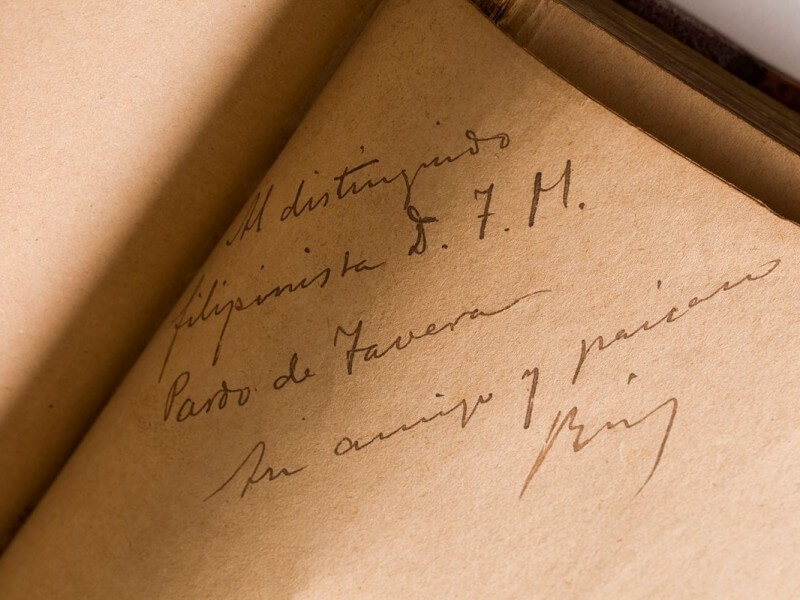 Al distinguido
filipinista D. T. H.
Pardo de Tavera
Su amigo y paisano
Rizal